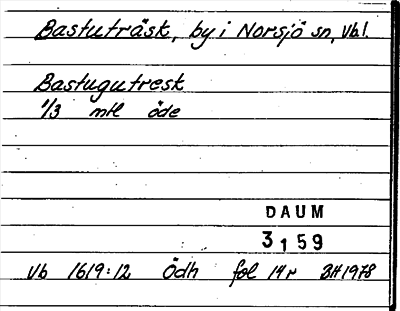 Bastuträsk, by i Norsjö sn, Vb.l.
Bastugutresk
1/3 mtl öde
DAUM
3159
Vb 1619:12 Ödh fol 14r BH 1978